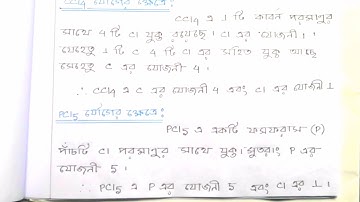 CCl4 যৌগের ক্ষেত্রে:
CCl4 এ 1 টি কার্বন পরমাণুর
সাথে 4 টি Cl যুক্ত রয়েছে। Cl এর যোজনী 1।
যেহেতু 1 টি C 4 টি Cl এর সহিত যুক্ত আছে
সেহেতু C এর যোজনী 4।
∴ CCl4 এ C এর যোজনী 4 এবং Cl এর যোজনী 1
PCl5 যৌগের ক্ষেত্রে:
PCl5 এ একটি ফসফরাস (P)
পাঁচটি Cl পরমাণুর সাথে যুক্ত। সুতরাং P এর
যোজনী 5।
∴ PCl5 এ P এর যোজনী 5 এবং Cl এর 1।